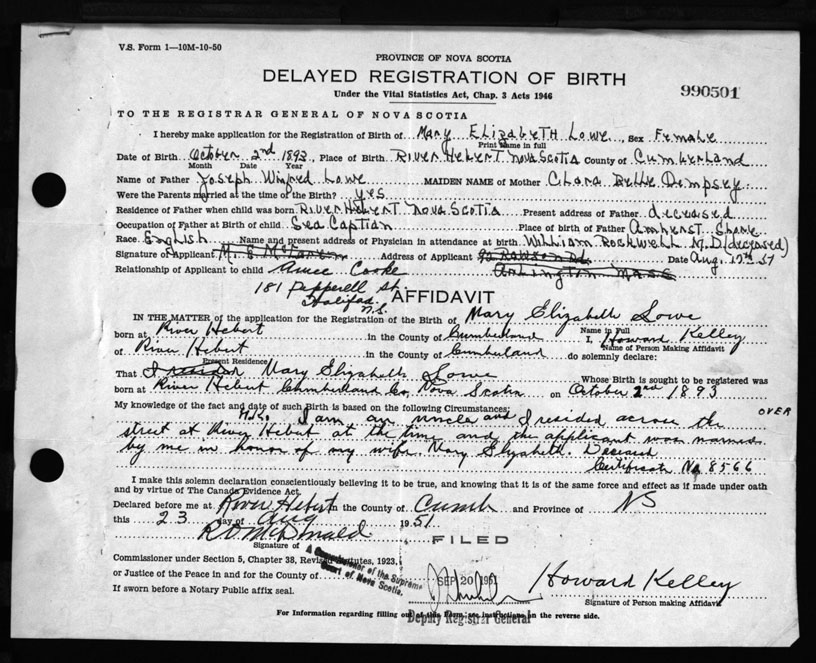 V.S. Form 1—10M-10-50
PROVINCE OF NOVA SCOTIA
DELAYED REGISTRATION OF BIRTH
990501
Under the Vital Statistics Act, Chap. 3 Acts 1946
TO THE REGISTRAR GENERAL OF NOVA SCOTIA
I hereby make application for the Registration of Birth of Mary Elizabeth Lowe, Sex Female
Print Name in full
Date of Birth October 2nd 1893, Place of Birth River Hebert Nova Scotia County of Cumberland
Month Date Year
Name of Father Joseph Winfred Lowe MAIDEN NAME of Mother Clara Belle Dempsey
Were the Parents married at the time of the Birth? Yes
Residence of Father when child was born River Hebert Nova Scotia Present address of Father deceased
Occupation of Father at Birth of child Sea Captian Place of birth of Father Amherst Shore
Race English Name and present address of Physician in attendance at birth William Rockwell M.D (deceased)
Signature of Applicant Address of Applicant Date Aug. 17th 51
Relationship of Applicant to child Cooke Arlington Mass
181 Pepperell St.
Halifax
N.S.
AFFIDAVIT
IN THE MATTER of the application for the Registration of the Birth of Mary Elizabeth Lowe
Name in Full
born at River Hebert in the County of Cumberland I, Howard Kelley
Name of Person Making Affidavit
of River Hebert in the County of Cumberland do solemnly declare:
Present Residence
That Mary Elizabeth Lowe Whose Birth is sought to be registered was
born at River Hebert Cumberland Co, Nova Scotia on October 2nd 1893
My knowledge of the fact and date of such Birth is based on the following Circumstances: OVER
H.K. I am an uncle and I resided across the
street at River Hebert at the time and the applicant was named
by me in honor of my wife Mary Elizabeth. Deceased
Certificate No 8566
I make this solemn declaration conscientiously believing it to be true, and knowing that it is of the same force and effect as if made under oath
and by virtue of The Canada Evidence Act.
Declared before me at River Hebert in the County of Cumb and Province of NS
this 23 day of Aug 1951
R D McDonald
Signature of
FILED
SEP 20 1951
A Commissioner of the Supreme
Court of Nova Scotia.
Commissioner under Section 5, Chapter 38, Revised Statutes, 1923,
or Justice of the Peace in and for the County of
If sworn before a Notary Public affix seal.
Howard Kelley
Signature of Person making Affidavit
Deputy Registrar General
For Information regarding filling out of this Form, see instructions on the reverse side.